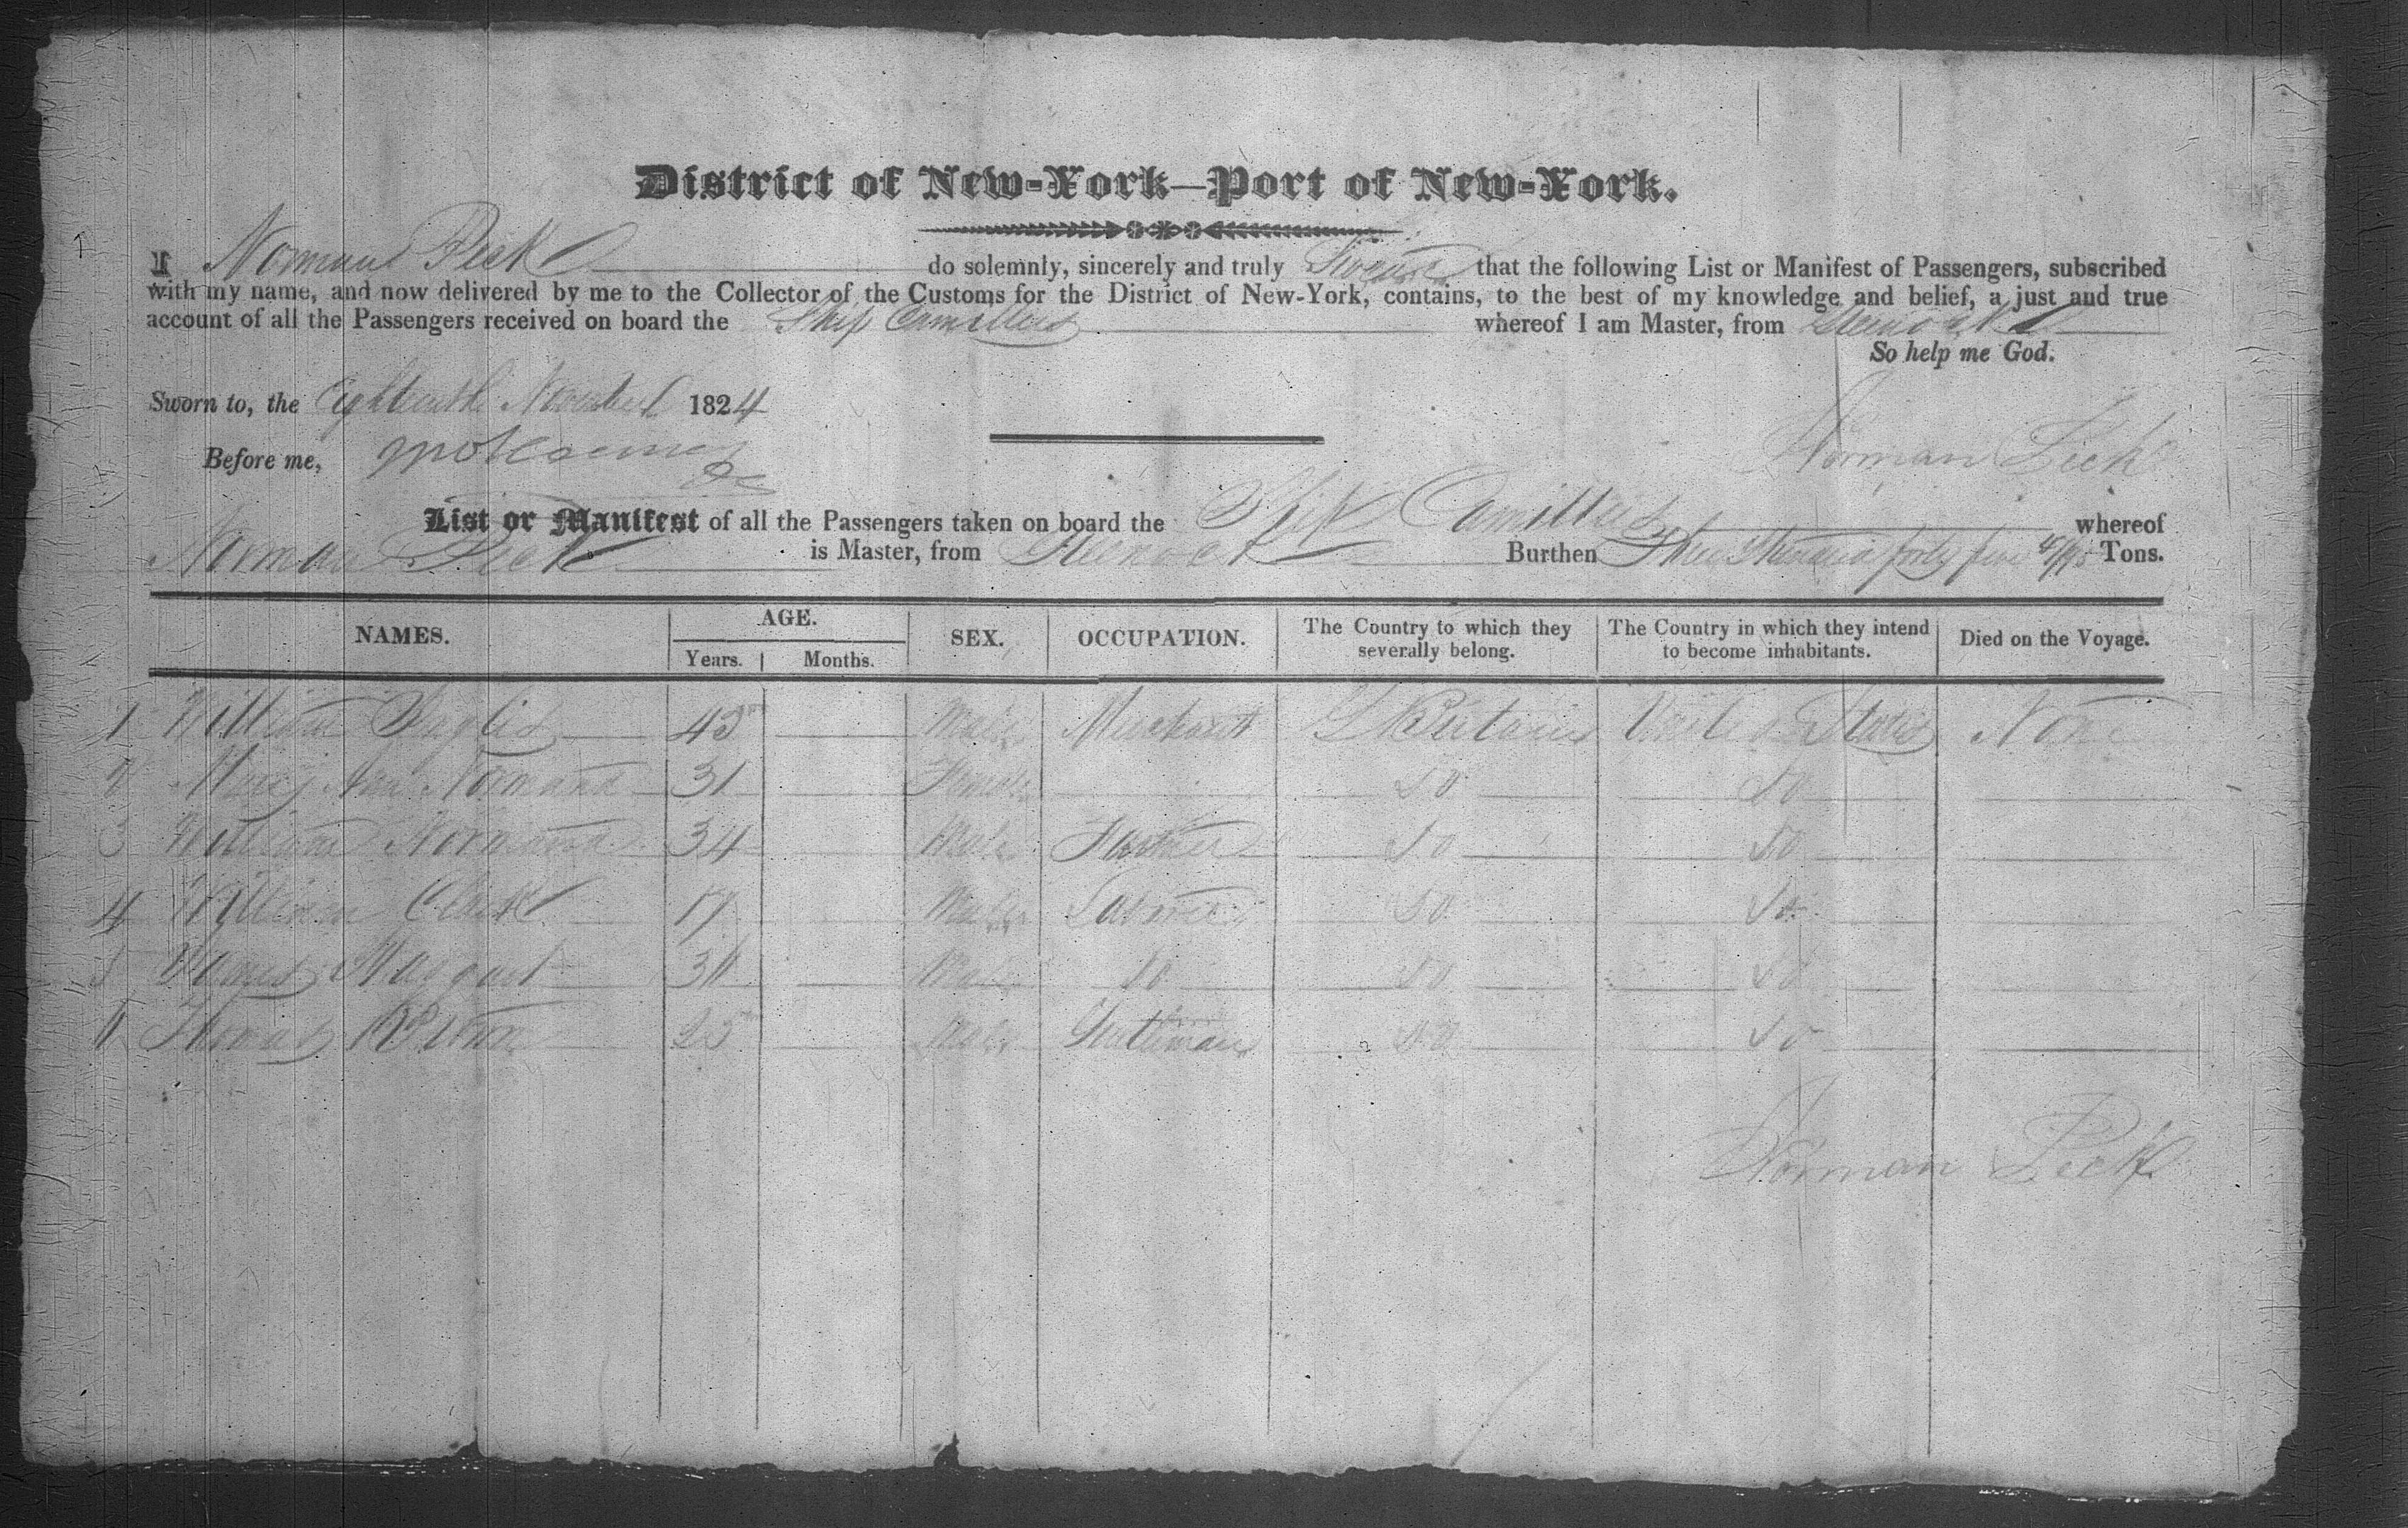 District of New-York—Port of New-York.
I Norman Peck do solemnly, sincerely and truly Swear that the following List or Manifest of Passengers, subscribed
with my name, and now delivered by me to the Collector of the Customs for the District of New-York, contains, to the best of my knowledge and belief, a just and true
account of all the Passengers received on board the Ship Camillus whereof I am Master, from Greenock
So help me God.
Sworn to, the Eighteenth November 1824
Norman Peck
Before me,
List or Manifest of all the Passengers taken on board the Ship Camillus whereof
Norman Peck is Master, from Greenock Burthen Three Hundred forty five /95 Tons.
NAMES. AGE. SEX. OCCUPATION. The Country to which they severally belong. The Country in which they intend to become inhabitants. Died on the Voyage.
Years. Months.
1 William 43 Male Merchant G Britain United States None
2 Mary Ann Normand 31 Female Do Do
3 William Normand 34 Male Farmer Do Do
4 William Clark 17 Male Do Do
5 James Male Do Do Do
6 Thomas 25 Male Gentleman Do Do
Norman Peck